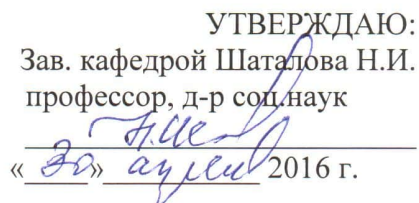 УТВЕРЖДАЮ:
Зав. кафедрой Шаталова Н.И.
профессор, д-р соц.наук
«30» апреля 2016 г.